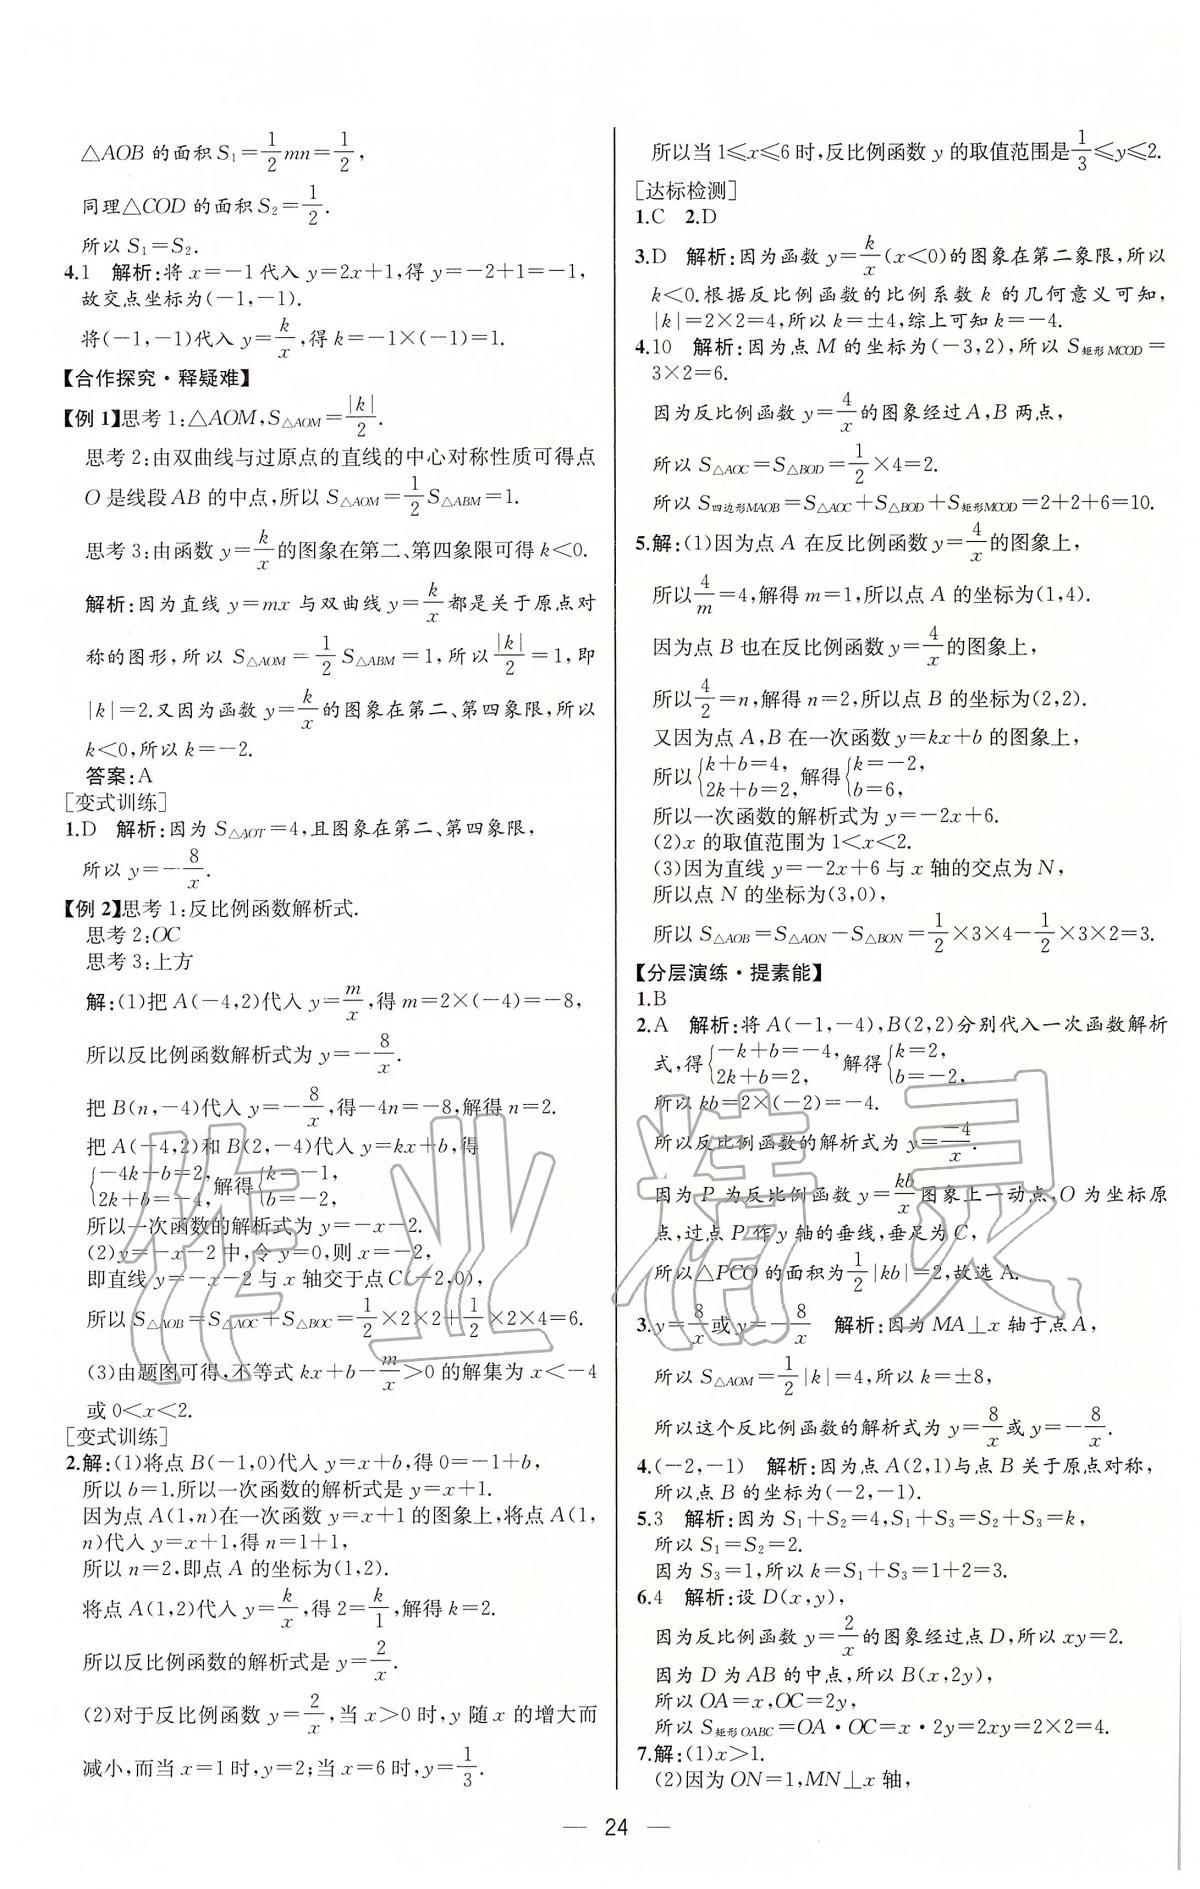 △AOB 的面积 S₁=1/2 mn=1/2,
同理△COD 的面积 S₂=1/2.
所以 S₁=S₂.
4.1 解析:将 x=-1代入 y=2x+1,得 y=-2+1=-1,
故交点坐标为(-1,-1).
将(-1,-1)代入 y=k/x,得 k=-1×(-1)=1.
【合作探究·释疑难】
【例 1】思考 1:△AOM,S△AOM=|k|/2.
思考 2:由双曲线与过原点的直线的中心对称性质可得点
O 是线段 AB 的中点,所以 S△AOM=1/2 S△ABM=1.
思考 3:由函数 y=k/x的图象在第二、第四象限可得 k<0.
解析:因为直线 y=mx 与双曲线 y=k/x都是关于原点对
称的图形,所以 S△AOM=1/2 S△ABM=1,所以|k|/2=1,即
|k|=2.又因为函数 y=k/x的图象在第二、第四象限,所以
k<0,所以 k=-2.
答案:A
[变式训练]
1.D 解析:因为 S△AOT=4,且图象在第二、第四象限,
所以 y=-8/x.
【例 2】思考 1:反比例函数解析式.
思考 2:OC
思考 3:上方
解:(1)把 A(-4,2)代入 y=m/x,得 m=2×(-4)=-8,
所以反比例函数解析式为 y=-8/x.
把 B(n,-4)代入 y=-8/x,得-4n=-8,解得 n=2.
把 A(-4,2)和 B(2,-4)代入 y=kx+b,得
{-4k+b=2, 2k+b=-4, 解得{k=-1, b=-2,
所以一次函数的解析式为 y=-x-2.
(2)y=-x-2 中,令 y=0,则 x=-2,
即直线 y=-x-2 与 x 轴交于点 C(-2,0),
所以 S△AOB=S△AOC+S△BOC=1/2×2×2+1/2×2×4=6.
(3)由题图可得,不等式 kx+b-m/x>0 的解集为 x<-4
或 0<x<2.
[变式训练]
2.解:(1)将点 B(-1,0)代入 y=x+b,得 0=-1+b,
所以 b=1.所以一次函数的解析式是 y=x+1.
因为点 A(1,n)在一次函数 y=x+1 的图象上,将点 A(1,
n)代入 y=x+1,得 n=1+1,
所以 n=2.即点 A 的坐标为(1,2).
将点 A(1,2)代入 y=k/x,得 2=k/1,解得 k=2.
所以反比例函数的解析式是 y=2/x.
(2)对于反比例函数 y=2/x,当 x>0 时,y 随 x 的增大而
减小,而当 x=1 时,y=2;当 x=6 时,y=1/3.
所以当 1≤x≤6 时,反比例函数 y 的取值范围是1/3≤y≤2.
[达标检测]
1.C 2.D
3.D 解析:因为函数 y=k/x(x<0)的图象在第二象限,所以
k<0.根据反比例函数的比例系数 k 的几何意义可知,
|k|=2×2=4,所以 k=±4,综上可知 k=-4.
4.10 解析:因为点 M 的坐标为(-3,2),所以 S矩形MCOD=
3×2=6.
因为反比例函数 y=4/x的图象经过 A,B 两点,
所以 S△AOC=S△BOD=1/2×4=2.
所以 S四边形MAOB=S△AOC+S△BOD+S矩形MCOD=2+2+6=10.
5.解:(1)因为点 A 在反比例函数 y=4/x的图象上,
所以4/m=4,解得 m=1,所以点 A 的坐标为(1,4).
因为点 B 也在反比例函数 y=4/x的图象上,
所以4/2=n,解得 n=2,所以点 B 的坐标为(2,2).
又因为点 A,B 在一次函数 y=kx+b 的图象上,
所以{k+b=4, 2k+b=2, 解得{k=-2, b=6,
所以一次函数的解析式为 y=-2x+6.
(2)x 的取值范围为 1<x<2.
(3)因为直线 y=-2x+6 与 x 轴的交点为 N,
所以点 N 的坐标为(3,0),
所以 S△AOB=S△AON-S△BON=1/2×3×4-1/2×3×2=3.
【分层演练·提素能】
1.B
2.A 解析:将 A(-1,-4),B(2,2)分别代入一次函数解析
式,得{-k+b=-4, 2k+b=2, 解得{k=2, b=-2,
所以 kb=2×(-2)=-4.
所以反比例函数的解析式为 y=-4/x.
因为 P 为反比例函数 y=kb/x图象上一动点,O 为坐标原
点,过点 P 作 y 轴的垂线,垂足为 C,
所以△PCO 的面积为1/2|kb|=2,故选 A.
3.y=8/x或 y=-8/x 解析:因为 MA⊥x 轴于点 A,
所以 S△AOM=1/2|k|=4,所以 k=±8,
所以这个反比例函数的解析式为 y=8/x或 y=-8/x.
4.(-2,-1) 解析:因为点 A(2,1)与点 B 关于原点对称,
所以点 B 的坐标为(-2,-1).
5.3 解析:因为 S₁+S₂=4,S₁+S₃=S₂+S₃=k,
所以 S₁=S₂=2.
因为 S₃=1,所以 k=S₁+S₃=1+2=3.
6.4 解析:设 D(x,y),
因为反比例函数 y=2/x的图象经过点 D,所以 xy=2.
因为 D 为 AB 的中点,所以 B(x,2y),
所以 OA=x,OC=2y,
所以 S矩形OABC=OA·OC=x·2y=2xy=2×2=4.
7.解:(1)x>1.
(2)因为 ON=1,MN⊥x 轴,
— 24 —
作业精灵